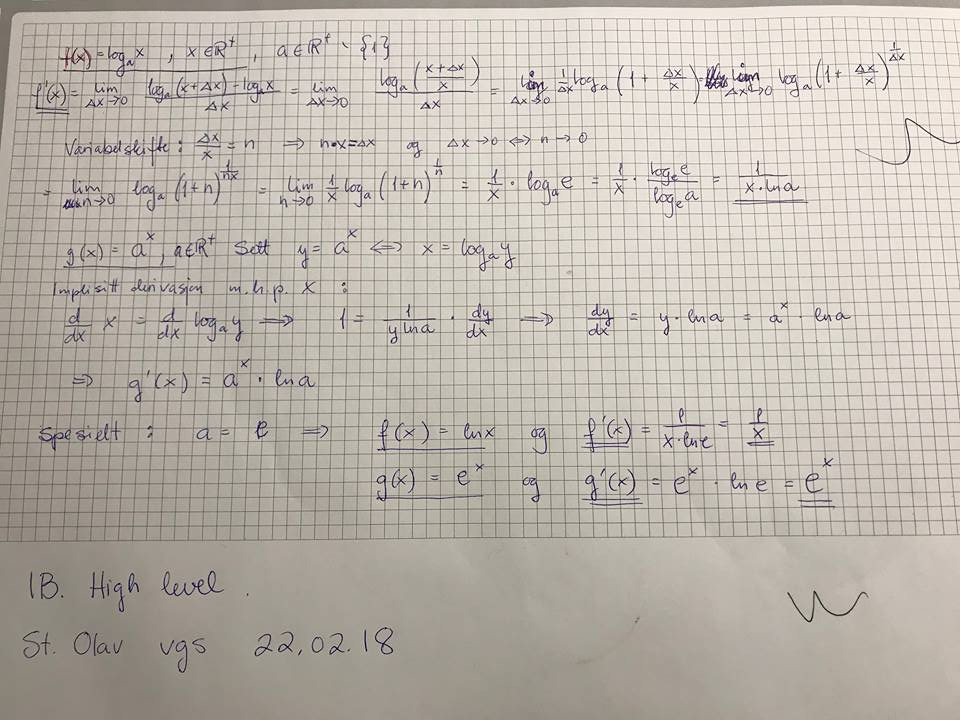 f(x) = logₐx , x∈ℝ⁺ , a∈ℝ⁺ \ {1}
f'(x) = lim_{Δx→0} (logₐ(x+Δx) - logₐx)/Δx = lim_{Δx→0} logₐ((x+Δx)/x)/Δx = lim_{Δx→0} 1/Δx logₐ(1 + Δx/x) = lim_{Δx→0} logₐ(1 + Δx/x)^{1/Δx}
Variabelskifte : Δx/x = n ⇒ n·x = Δx og Δx→0 ⇔ n→0
= lim_{n→0} logₐ(1+n)^{1/nx} = lim_{n→0} 1/x logₐ(1+n)^{1/n} = 1/x · logₐe = 1/x · logₑe/logₑa = 1/(x·lna)
g(x) = aˣ , a∈ℝ⁺ Sett y = aˣ ⇔ x = logₐy
Implisitt derivasjon m.h.p. x :
d/dx x = d/dx logₐy ⇒ 1 = 1/(y lna) · dy/dx ⇒ dy/dx = y·lna = aˣ · lna
⇒ g'(x) = aˣ · lna
Spesielt : a = e ⇒ f(x) = lnx og f'(x) = 1/(x·lne) = 1/x
g(x) = eˣ og g'(x) = eˣ · lne = eˣ
IB. High level .
St. Olav vgs 22.02.18